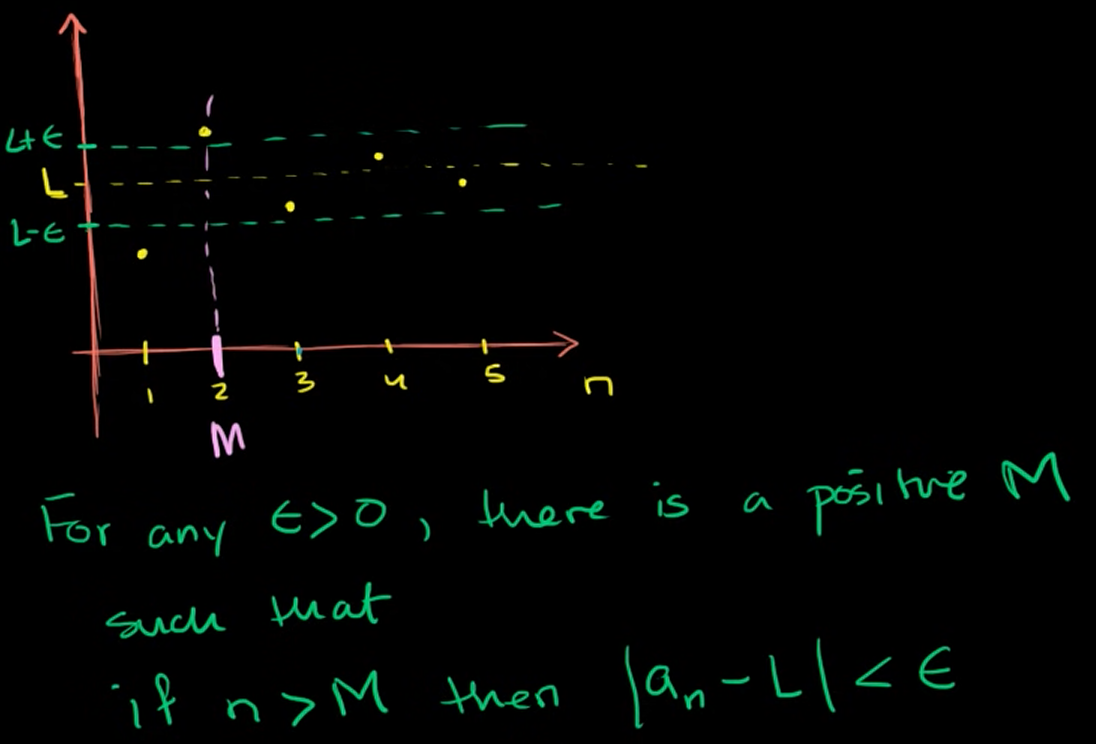 L+ϵ
L
L-ϵ
1 2 3 4 5 n
M
For any ϵ>0, there is a positive M
such that
if n>M then |aₙ-L|<ϵ